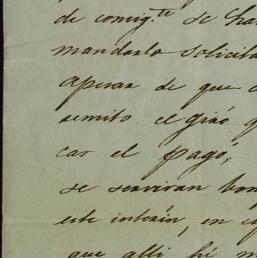 de comig.te se ha
mandarlo solicita
apesar de que
remito el giro q
car el pago,
se serviran
este interin, en
que alli